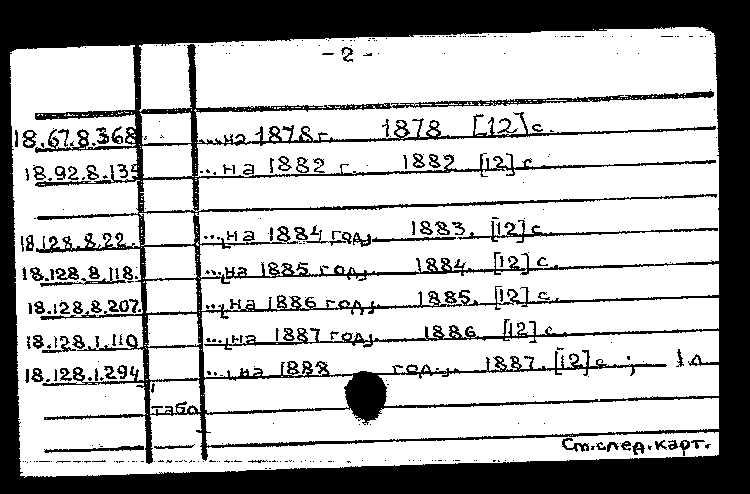 - 2 -
18.67.8.368 ...на 1878 г. 1878. [12] с.
18.92.8.135 ...на 1882 г. 1882 [12] с
18.128.8.22. ...[на 1884 год]. 1883. [12] с.
18.128.8.118. ...[на 1885 год]. 1884. [12] с.
18.128.8.207 ...[на 1886 год]. 1885. [12] с.
18.128.1.110 ...[на 1887 год]. 1886. [12] с.
18.128.1.294 ...[на 1888 год]. 1887. [12] с. ; 1 л
табл
См.след.карт.